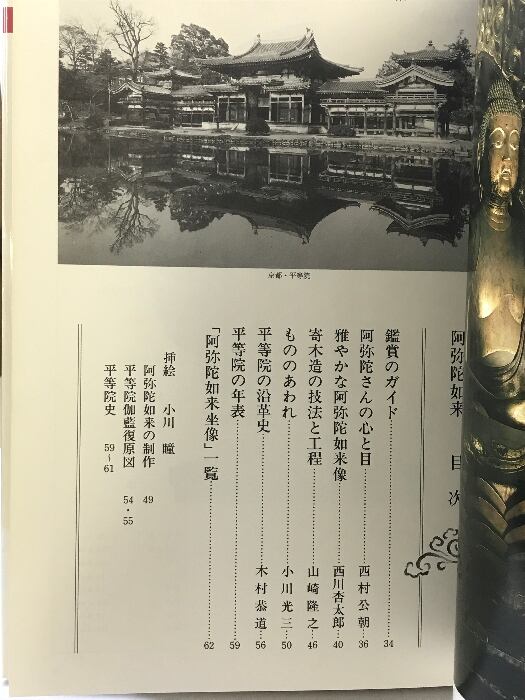 京都・平等院
阿弥陀如来　目次
鑑賞のガイド……34
阿弥陀さんの心と目……西村公朝　36
雅やかな阿弥陀如来像……西川杏太郎　40
寄木造の技法と工程……山崎隆之　46
もののあわれ……小川光三　50
平等院の沿革史……木村恭道　56
平等院の年表……59
「阿弥陀如来坐像」一覧……62
挿絵　小川　瞳
阿弥陀如来の制作　49
平等院伽藍復原図　54・55
平等院史　59〜61